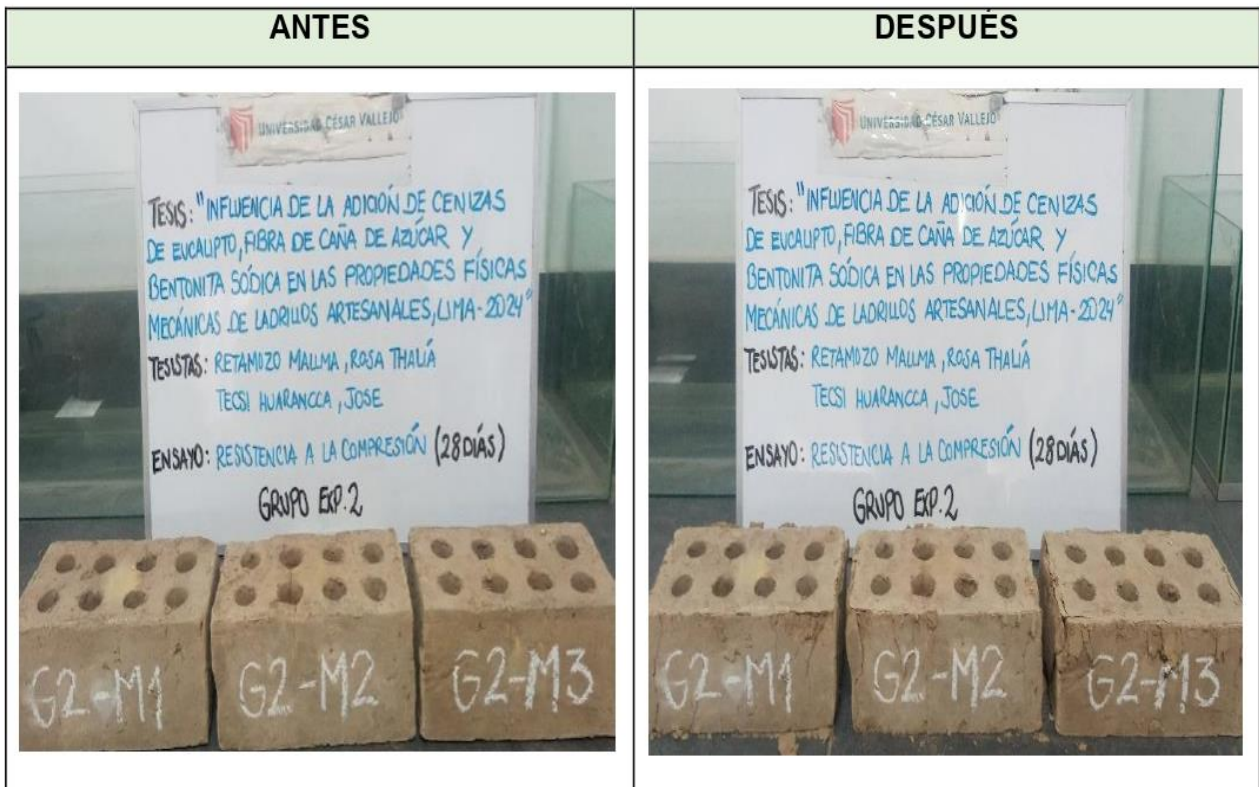 ANTES
DESPUÉS
UNIVERSIDAD CÉSAR VALLEJO
TESIS: "INFLUENCIA DE LA ADICIÓN DE CENIZAS
DE EUCALIPTO, FIBRA DE CAÑA DE AZÚCAR Y
BENTONITA SÓDICA EN LAS PROPIEDADES FÍSICAS
MECÁNICAS DE LADRILLOS ARTESANALES, LIMA-2024"
TESISTAS: RETAMOZO MALLMA, ROSA THALIÁ
TECSI HUARANCCA, JOSE
ENSAYO: RESISTENCIA A LA COMPRESIÓN (28 DÍAS)
GRUPO EXP.2
G2-M1
G2-M2
G2-M3
UNIVERSIDAD CÉSAR VALLEJO
TESIS: "INFLUENCIA DE LA ADICIÓN DE CENIZAS
DE EUCALIPTO, FIBRA DE CAÑA DE AZÚCAR Y
BENTONITA SÓDICA EN LAS PROPIEDADES FÍSICAS
MECÁNICAS DE LADRILLOS ARTESANALES, LIMA-2024"
TESISTAS: RETAMOZO MALLMA, ROSA THALIÁ
TECSI HUARANCCA, JOSE
ENSAYO: RESISTENCIA A LA COMPRESIÓN (28 DÍAS)
GRUPO EXP.2
G2-M1
G2-M2
G2-M3